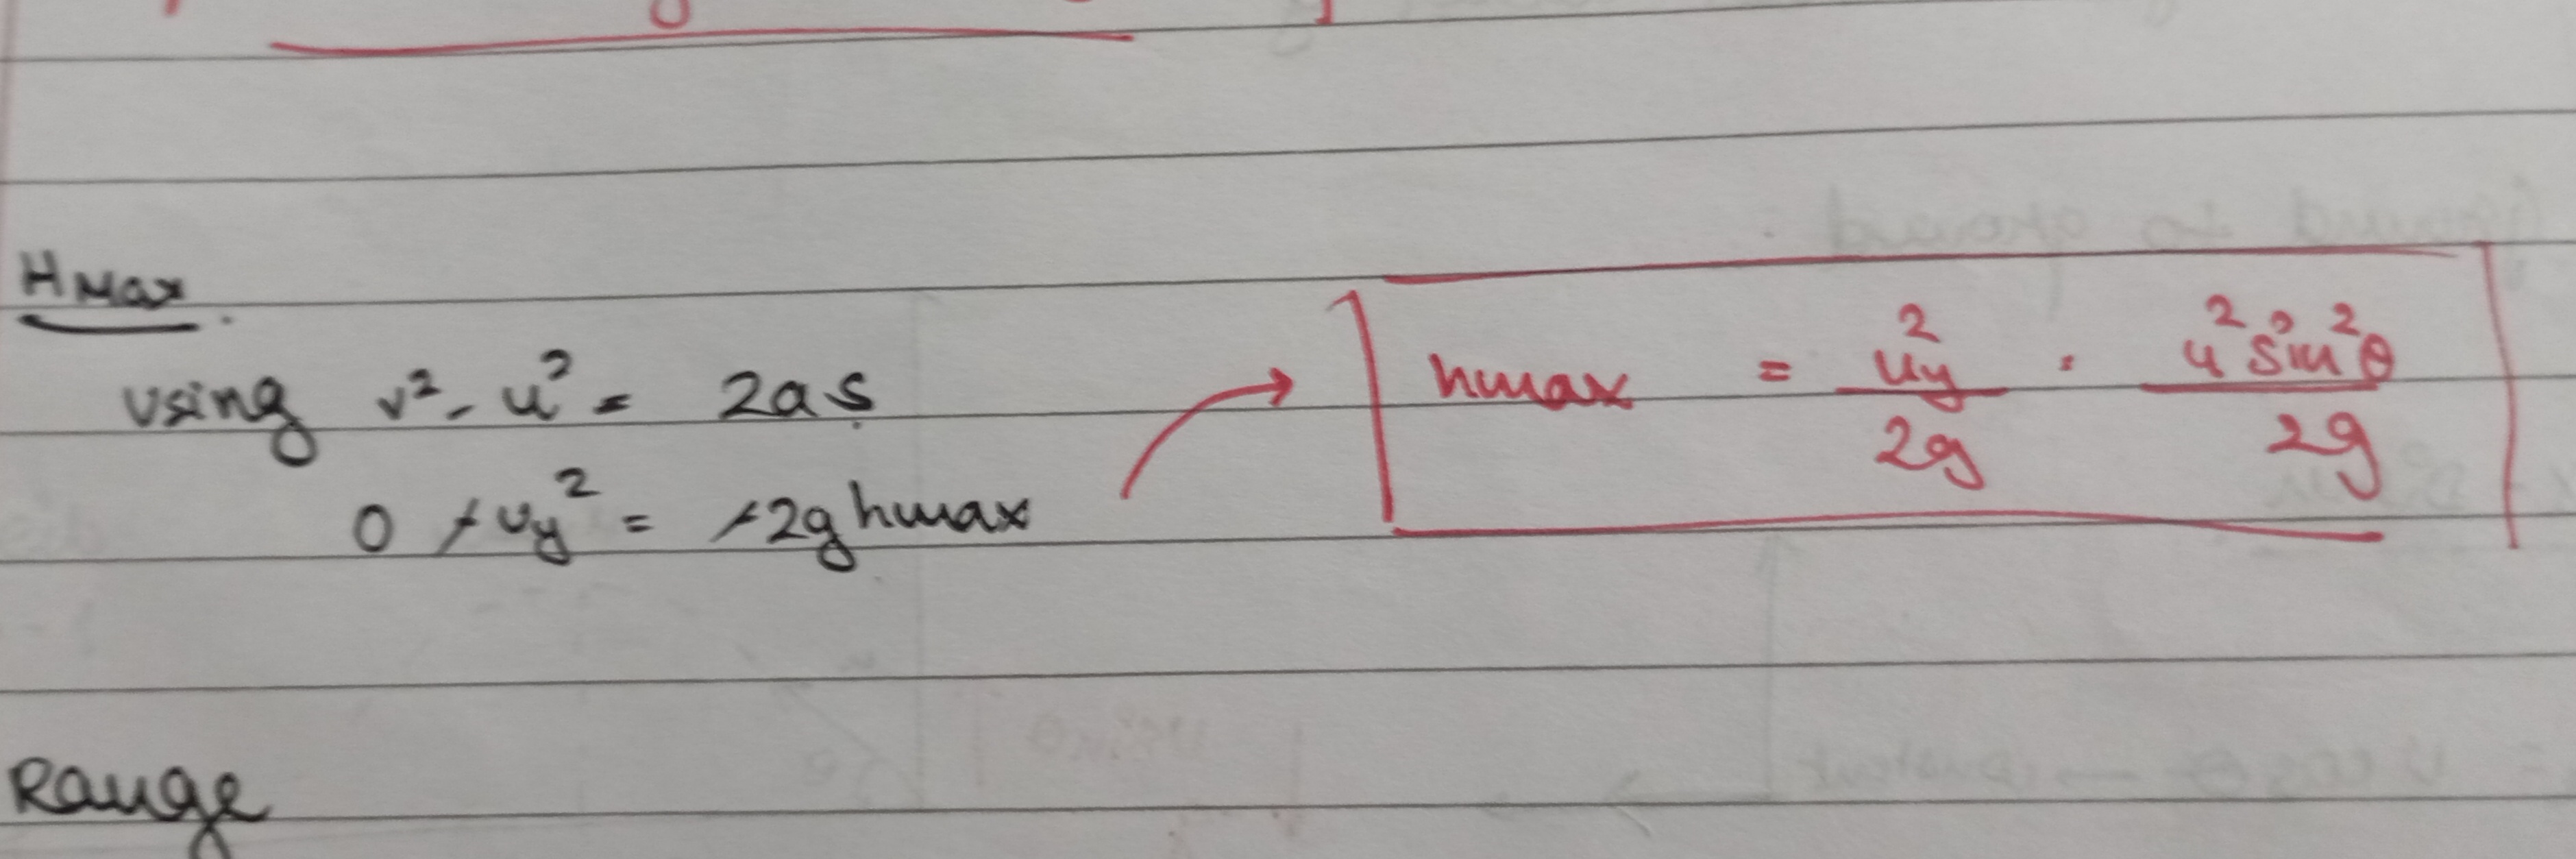 Hmax.
Using v² - u² = 2as
0 - uy² = -2g hmax
hmax = uy²/2g = u² sin²θ/2g
Range